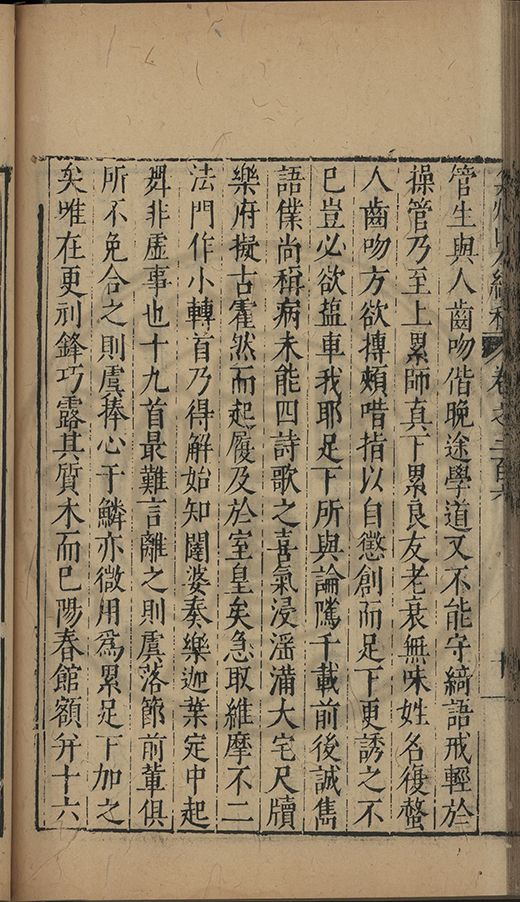 卷之二百六
十
管生與人齒吻偕晚途學道又不能守綺語戒輕於
操管乃至上累師真下累良友老衰無味姓名復螫
人齒吻方欲摶頰唶指以自懲創而足下更誘之不
已豈必欲搵車我耶足下所與論隲千載前後誠雋
語僕尚稱病未能四詩歌之喜氣浸滛滿大宅尺牘
樂府擬古霍然而起屨及於室皇矣急取維摩不二
法門作小轉首乃得解始知闥婆奏樂迦葉定中起
舞非虛事也十九首最難言離之則虞落節前輩俱
所不免合之則虞捧心干鱗亦微用爲累足下加之
矣唯在更刓鋒巧露其質木而已陽春館額幷十六